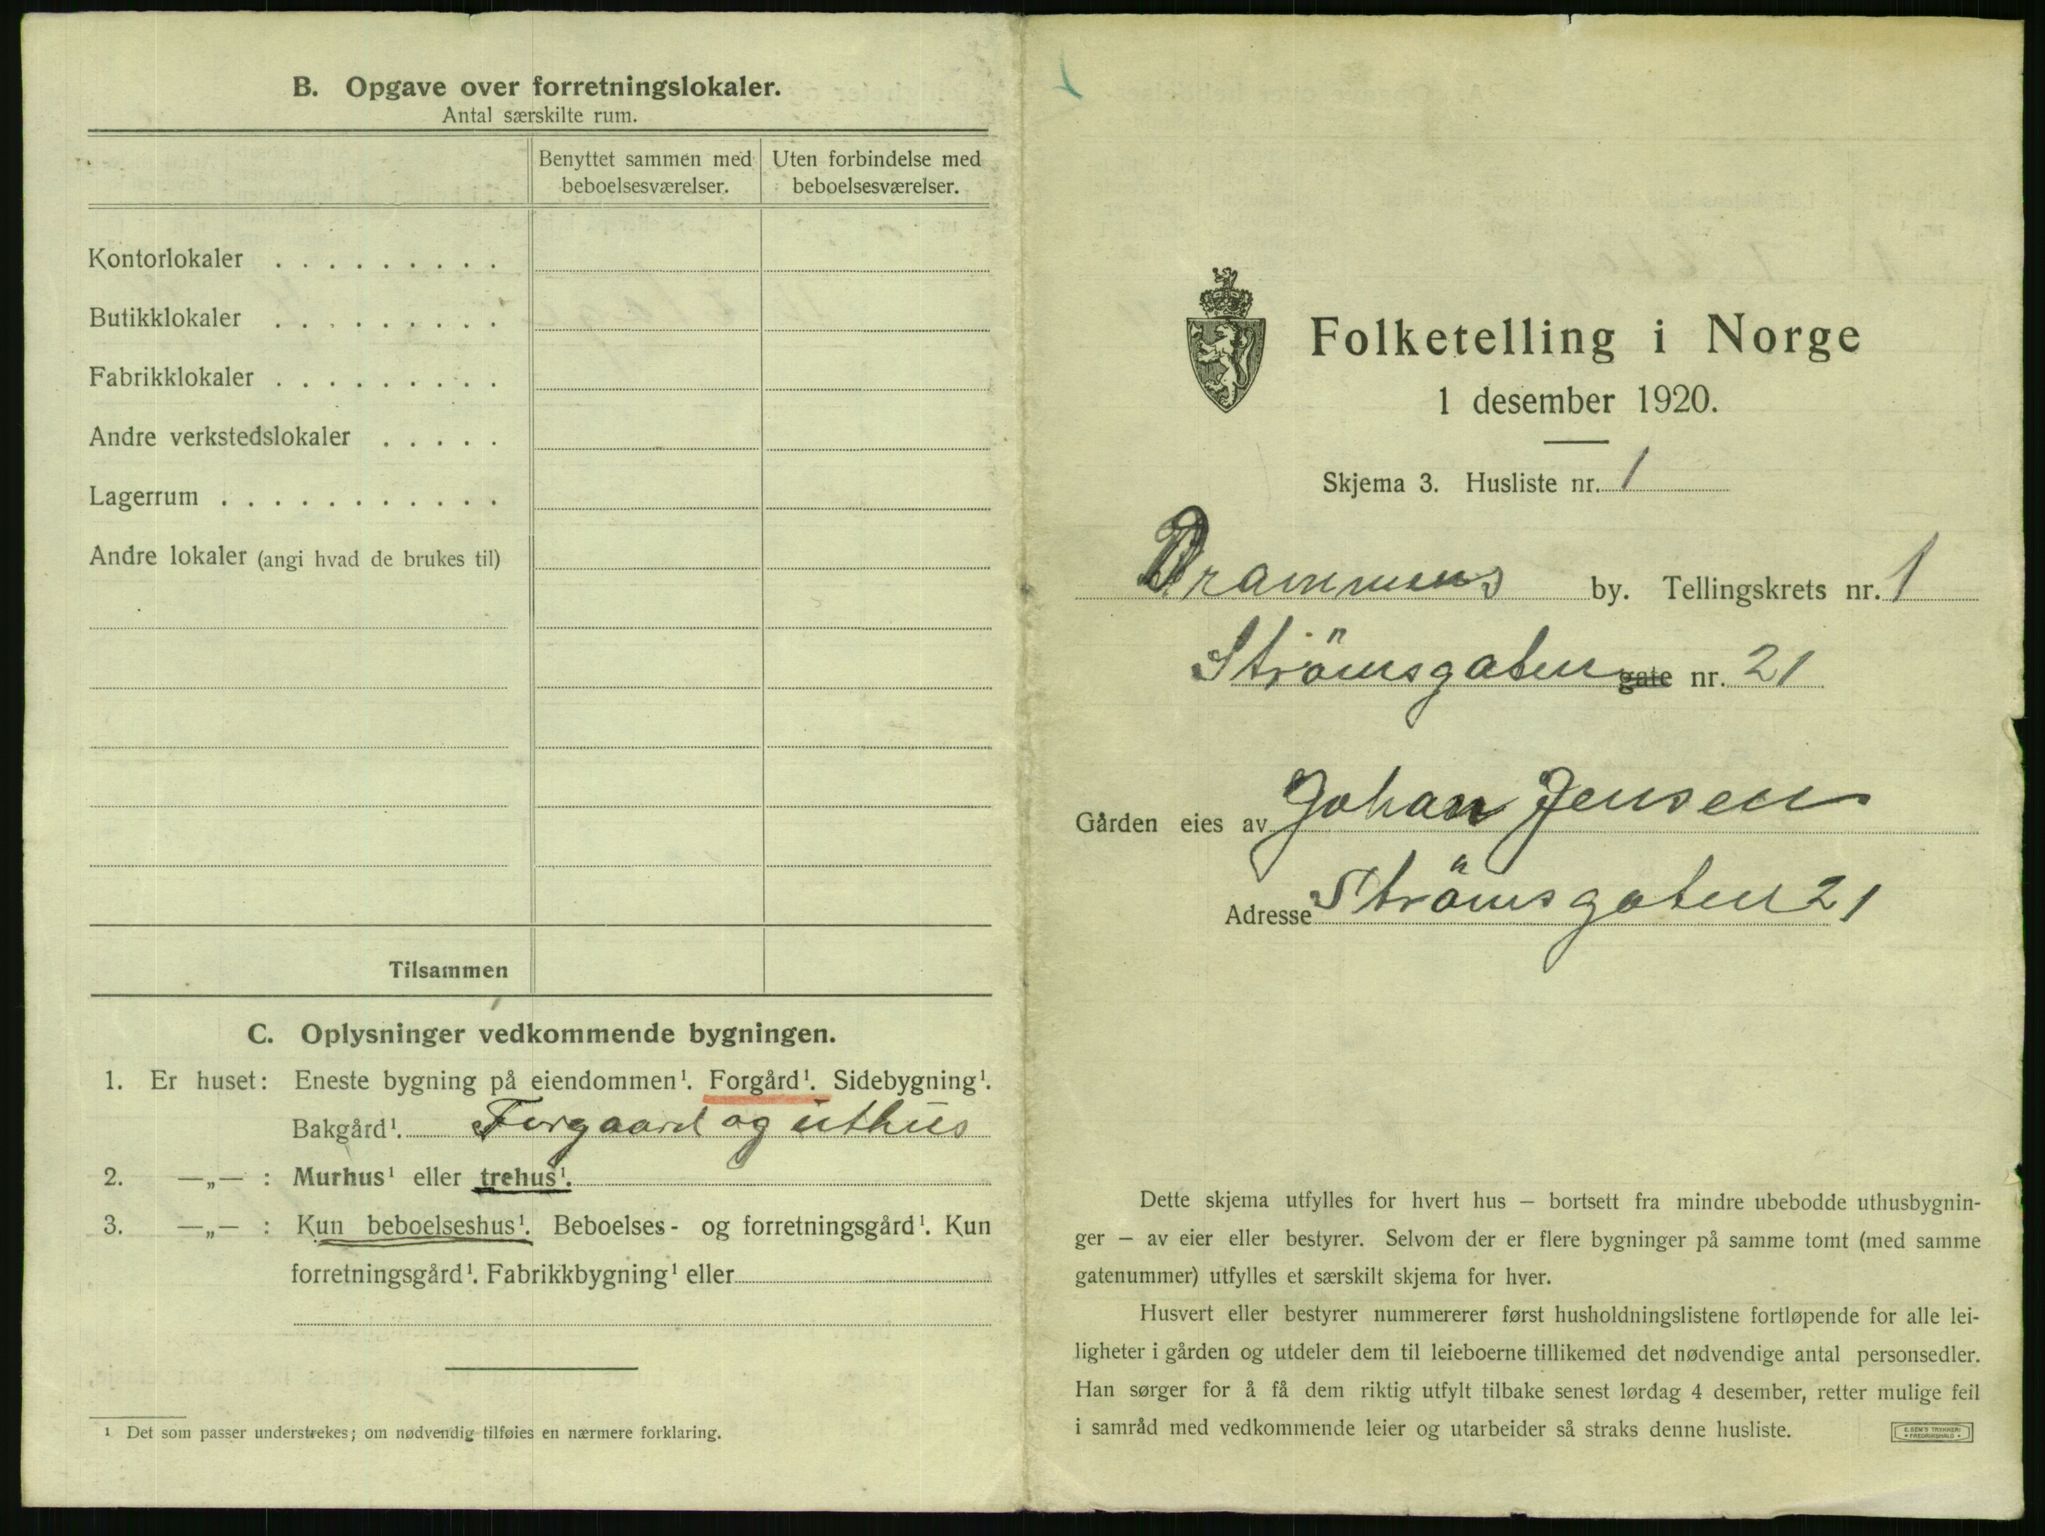 B. Opgave over forretningslokaler.
Antal særskilte rum.
Benyttet sammen med beboelsesværelser.
Uten forbindelse med beboelsesværelser.
Kontorlokaler . . . . . . . . .
Butikklokaler . . . . . . . . .
Fabrikklokaler . . . . . . . . .
Andre verkstedslokaler . . . . .
Lagerrum . . . . . . . . . . .
Andre lokaler (angi hvad de brukes til)
Tilsammen
C. Oplysninger vedkommende bygningen.
1. Er huset: Eneste bygning på eiendommen¹. Forgård¹. Sidebygning¹.
Bakgård¹. Forgaard og uthus
2. —„— : Murhus¹ eller trehus¹.
3. —„— : Kun beboelseshus¹. Beboelses- og forretningsgård¹. Kun
forretningsgård¹. Fabrikkbygning¹ eller
¹ Det som passer understrekes; om nødvendig tilføies en nærmere forklaring.
Folketelling i Norge
1 desember 1920.
Skjema 3. Husliste nr. 1
Drammens by. Tellingskrets nr. 1
Strömsgaten gate nr. 21
Gården eies av Johan Jensen
Adresse Strömsgaten 21
Dette skjema utfylles for hvert hus — bortsett fra mindre ubebodde uthusbygnin-
ger — av eier eller bestyrer. Selvom der er flere bygninger på samme tomt (med samme
gatenummer) utfylles et særskilt skjema for hver.
Husvert eller bestyrer nummererer først husholdningslistene fortløpende for alle lei-
ligheter i gården og utdeler dem til leieboerne tillikemed det nødvendige antal personsedler.
Han sørger for å få dem riktig utfylt tilbake senest lørdag 4 desember, retter mulige feil
i samråd med vedkommende leier og utarbeider så straks denne husliste.
E. SEM'S TRYKKERI
• FREDRIKSHALD •